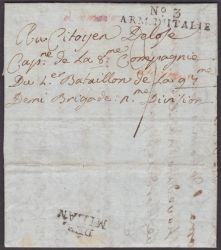 No 3
ARM. D'ITALIE
Au Citoyen Delose
Capne de La 8me Compagnie
Du 1er Bataillon de la 9me
Demi Brigade. nme Division
MILAN